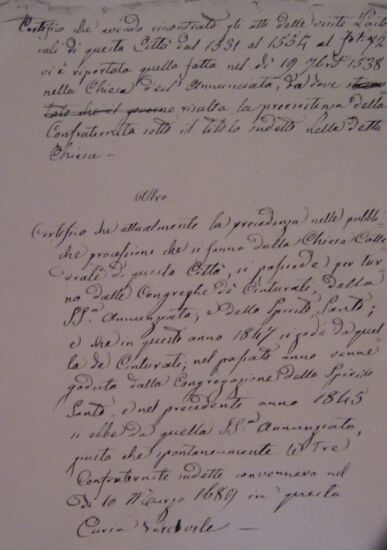 Certifico che avendo riscontrato gli atti delle visite Pasto-
rali di questa Città dal 1531 al 1554 al fol. 42
vi è riportata quella fatta nel dì 19 7bre 1538
nella Chiesa dell'Annunciata, da dove
risulta la preesistenza della
Confraternita sotto il titolo sudetto nella detta
Chiesa —
Altro
Certifico che attualmente la precedenza nelle pubbli-
che processioni che si fanno dalla Chiesa Catte-
drale di questa Città, si possiede per tur-
no dalle Congreghe de' Cinturati, della
SS.a Annunziata, e dello Spirito Santo;
e che in questo anno 1847 si gode da quel-
la de' Cinturati; nel passato anno venne
goduta dalla Congregazione dello Spirito
Santo, e nel precedente anno 1845
si ebbe da quella SS.a Annunziata,
giusto che spontaneamente le Tre
Confraternite sudette convennero nel
dì 10 Marzo 1689 in questa
Curia Vescovile —